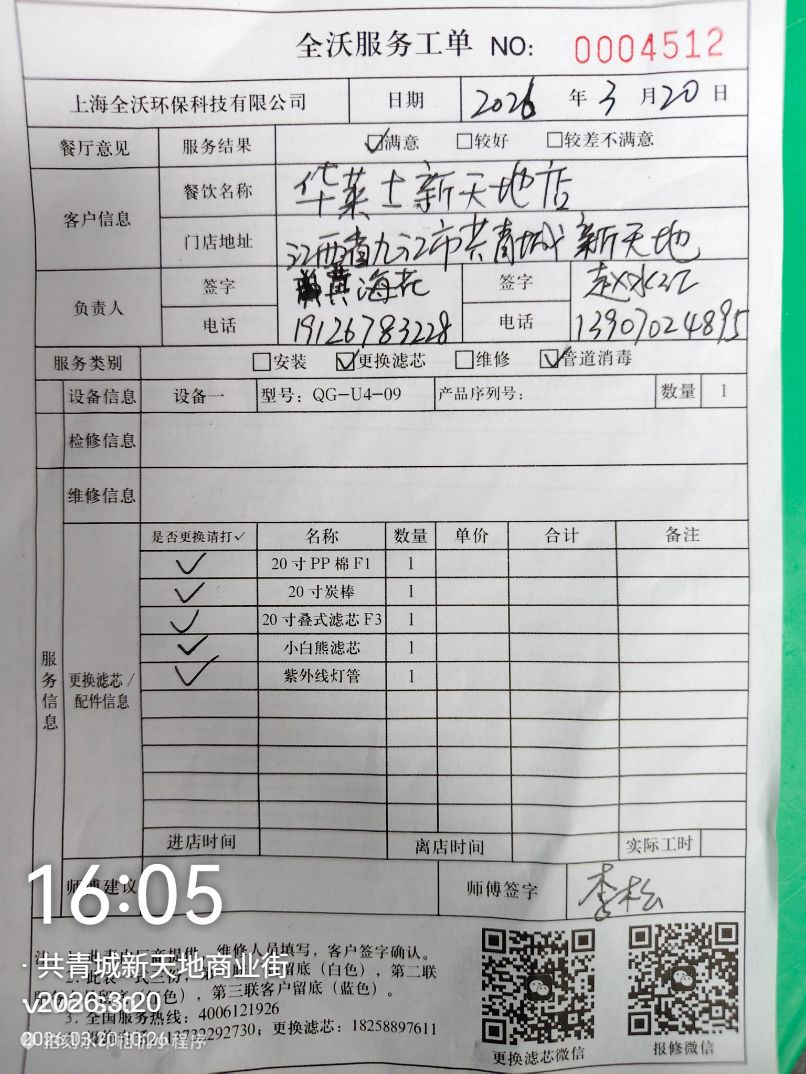 全沃服务工单 NO: 0004512
上海全沃环保科技有限公司 日期 2026 年 3 月 20 日
餐厅意见 服务结果 ☑满意 □较好 □较差不满意
客户信息 餐饮名称 华莱士新天地店
门店地址 江西省九江市共青城新天地
负责人 签字 黄海花 签字 赵水江
电话 19126783228 电话 13907024895
服务类别 □安装 ☑更换滤芯 □维修 ☑管道消毒
设备信息 设备一 型号：QG-U4-09 产品序列号： 数量 1
检修信息
维修信息
服务信息 更换滤芯/配件信息
是否更换请打✓ 名称 数量 单价 合计 备注
✓ 20寸PP棉F1 1
✓ 20寸炭棒 1
✓ 20寸叠式滤芯F3 1
✓ 小白熊滤芯 1
✓ 紫外线灯管 1
进店时间 离店时间 实际工时
师傅建议 师傅签字 李松
16:05
维修人员填写，客户签字确认。
· 共青城新天地商业街
留底（白色），第二联
2026.3.20
色），第三联客户留底（蓝色）。
3. 全国服务热线：4006121926
2026.03.20 10:26
13732292730；更换滤芯：18258897611
更换滤芯微信 报修微信